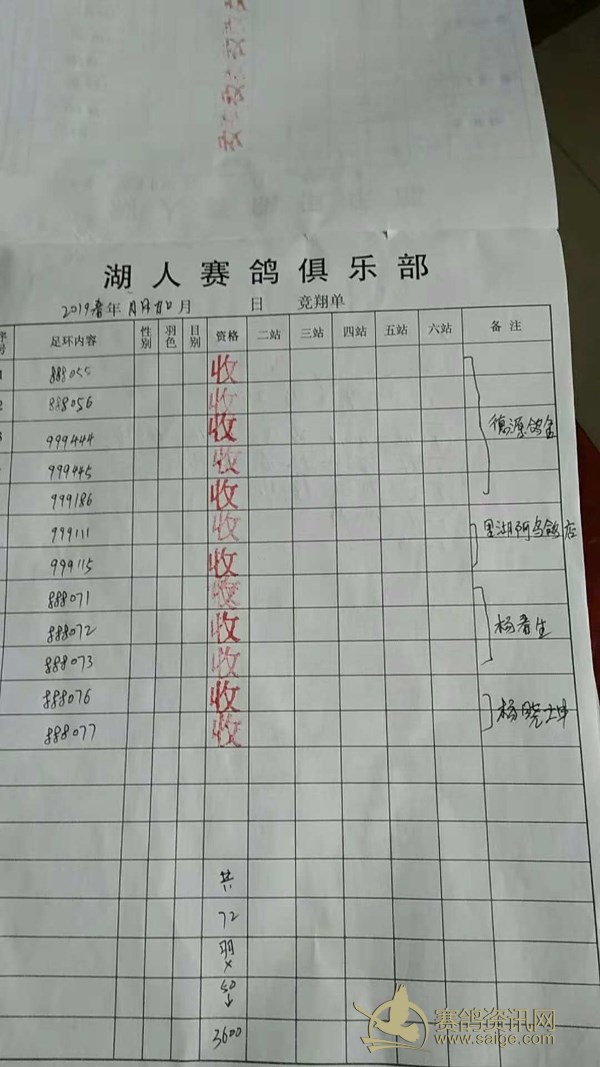 湖人赛鸽俱乐部
2019春年 月 日 竞翔单
序号 足环内容 性别 羽色 目别 资格 二站 三站 四站 五站 六站 备注
1 888055 收
2 888056 收
3 999444 收 德源鸽舍
999445 收
999186 收
999111 收 里湖阿乌鸽店
999115 收
888071 收
888072 收 杨春生
888073 收
888076 收 杨晓
888077 收
共
72
羽×
50
3600
赛鸽资讯网
www.saige.com